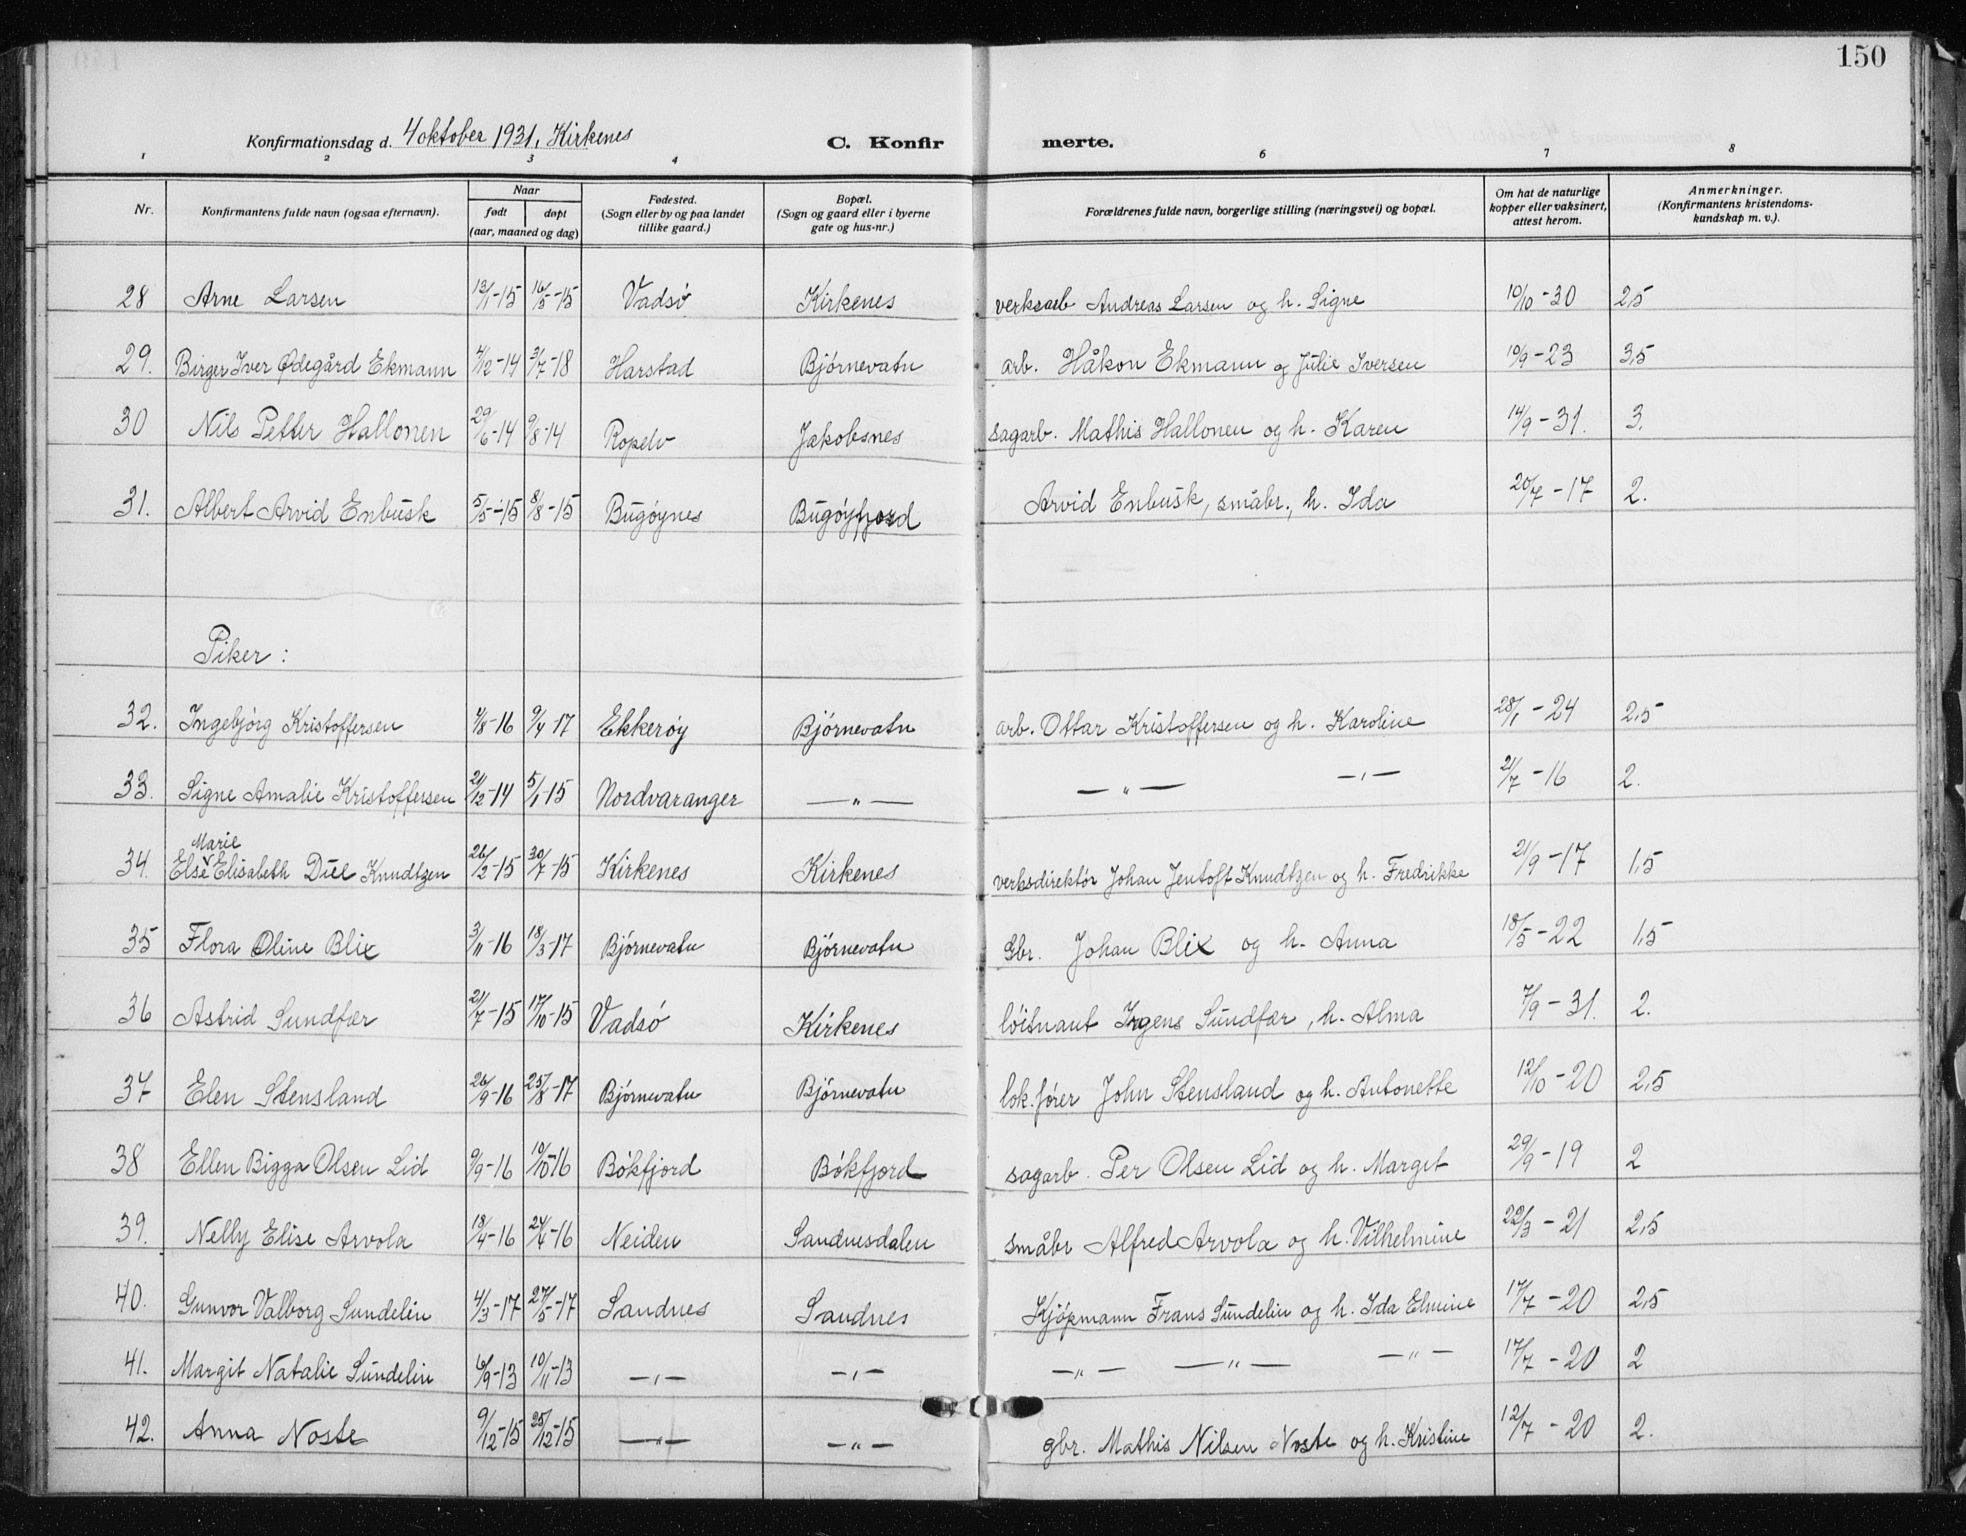 150
Konfirmationsdag d. 4 oktober 1931, Kirkenes C. Konfirmerte.
1 2 3 4 6 7 8
Nr. Konfirmantens fulde navn (ogsaa efternavn). Naar født døpt (aar, maaned og dag) Fødested. (Sogn eller by og paa landet tillike gaard.) Bopæl. (Sogn og gaard eller i byerne gate og hus-nr.) Forældrenes fulde navn, borgerlige stilling (næringsvei) og bopæl. Om hat de naturlige kopper eller vaksinert, attest herom. Anmerkninger. (Konfirmantens kristendomskundskap m. v.).
28 Arne Larsen 13/1-15 16/5-15 Vadsø Kirkenes verksarb Andreas Larsen og h. Signe 10/10-30 2,5
29. Birger Iver Ødegård Ekmann 4/12-14 3/7-18 Harstad Bjørnevatn arb. Håkon Ekmann og Julie Iversen 10/9-23 3,5
30 Nils Petter Hallonen 29/6-14 9/8-14 Ropelv Jakobsnes sagarb. Mathis Hallonen og h. Karen 14/9-31. 3.
31. Albert Arvid Enbusk 5/5-15 8/8-15 Bugøynes Bugøyfjord Arvid Enbusk, småbr., h. Ida 20/7-17 2.
Piker:
32. Ingebjørg Kristoffersen 4/8-16 9/4-17 Ekkerøy Bjørnevatn arb. Ottar Kristoffersen og h. Karoline 28/1-24 2,5
33. Signe Amalie Kristoffersen 21/12-14 5/1-15 Nordvaranger —„— —„— —,— 21/7-16 2.
34. Else Marie Elisabeth Due Knudtzen 26/2-15 30/7-15 Kirkenes Kirkenes verksdirektør Johan Jentoft Knudtzen og h. Fredrikke 21/9-17 1,5
35 Flora Oline Blix 3/11-16 18/3-17 Bjørnevatn Bjørnevatn Gbr. Johan Blix og h. Anna 18/5-22 1,5
36 Astrid Sundfær 21/7-15 17/10-15 Vadsø Kirkenes løitnant Ingens Sundfær, h. Alma 7/9-31. 2.
37 Elen Stensland 26/9-16 25/8-17 Bjørnevatn Bjørnevatn lok.fører John Stensland og h. Antonette 12/10-20 2,5
38 Ellen Bigga Olsen Lid 9/9-16 10/10-16 Bøkfjord Bøkfjord sagarb. Per Olsen Lid og h. Margit 29/9-19 2
39. Nelly Elise Arvola 18/4-16 24/4-16 Neiden Sandnesdalen småbr Alfred Arvola og h. Vilhelmine 22/3-21 2,5
40. Gunvor Valborg Sundelin 4/3-17 27/5-17 Sandnes Sandnes Kjøpmann Frans Sundelin og h. Ida Elmine 17/7-20 2,5
41. Margit Natalie Sundelin 6/9-13 10/11-13 —,— —,— —„— —„— —„— 17/7-20 2
42. Anna Noste 9/12-15 25/12-15 —„— —„— gbr. Mathis Nilsen Noste og h. Kristine 12/7-20 2.